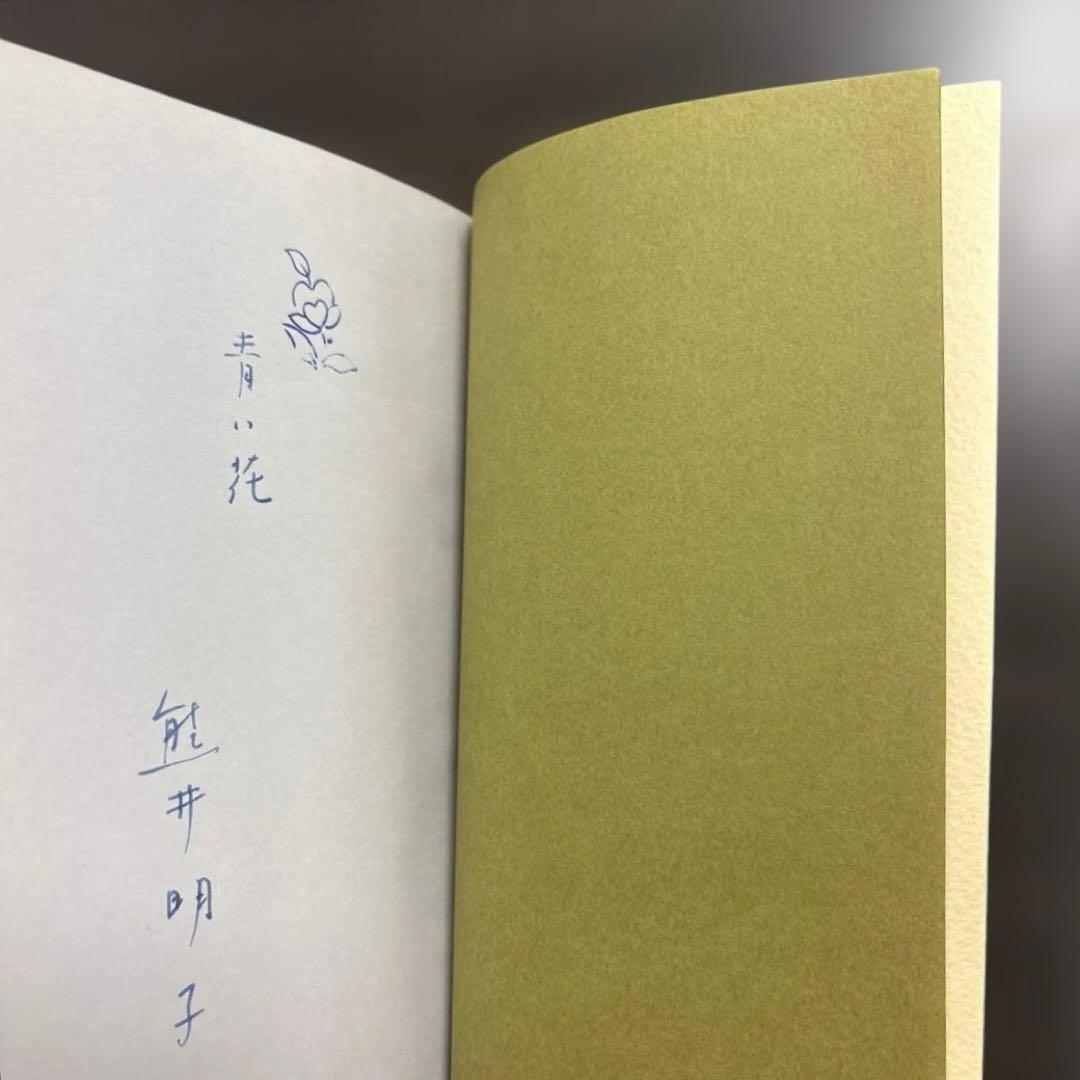 青い花
熊井明子